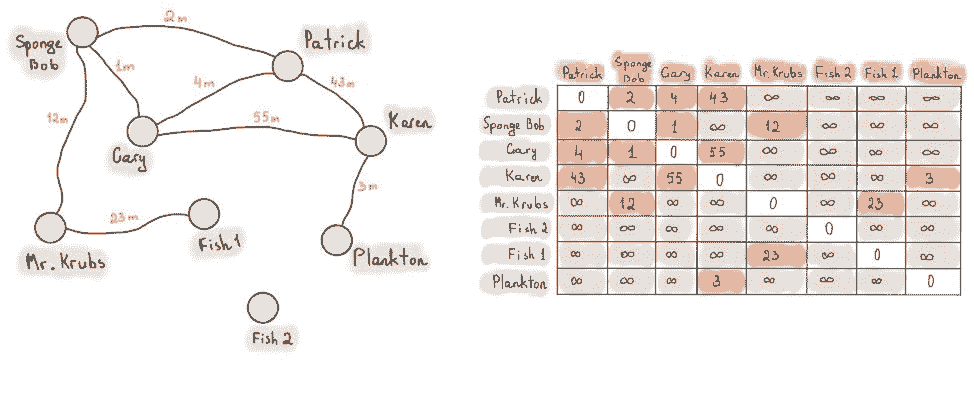 2m
Sponge
Bob
Patrick
1m
4m
43m
12m
55m
Karen
Gary
3m
23m
Fish 1
Mr. Krubs
Plankton
Fish 2
Patrick Sponge Bob Gary Karen Mr. Krubs Fish 2 Fish 1 Plankton
Patrick 0 2 4 43 ∞ ∞ ∞ ∞
Sponge Bob 2 0 1 ∞ 12 ∞ ∞ ∞
Gary 4 1 0 55 ∞ ∞ ∞ ∞
Karen 43 ∞ 55 0 ∞ ∞ ∞ 3
Mr. Krubs ∞ 12 ∞ ∞ 0 ∞ 23 ∞
Fish 2 ∞ ∞ ∞ ∞ ∞ 0 ∞ ∞
Fish 1 ∞ ∞ ∞ ∞ 23 ∞ 0 ∞
Plankton ∞ ∞ ∞ 3 ∞ ∞ ∞ 0